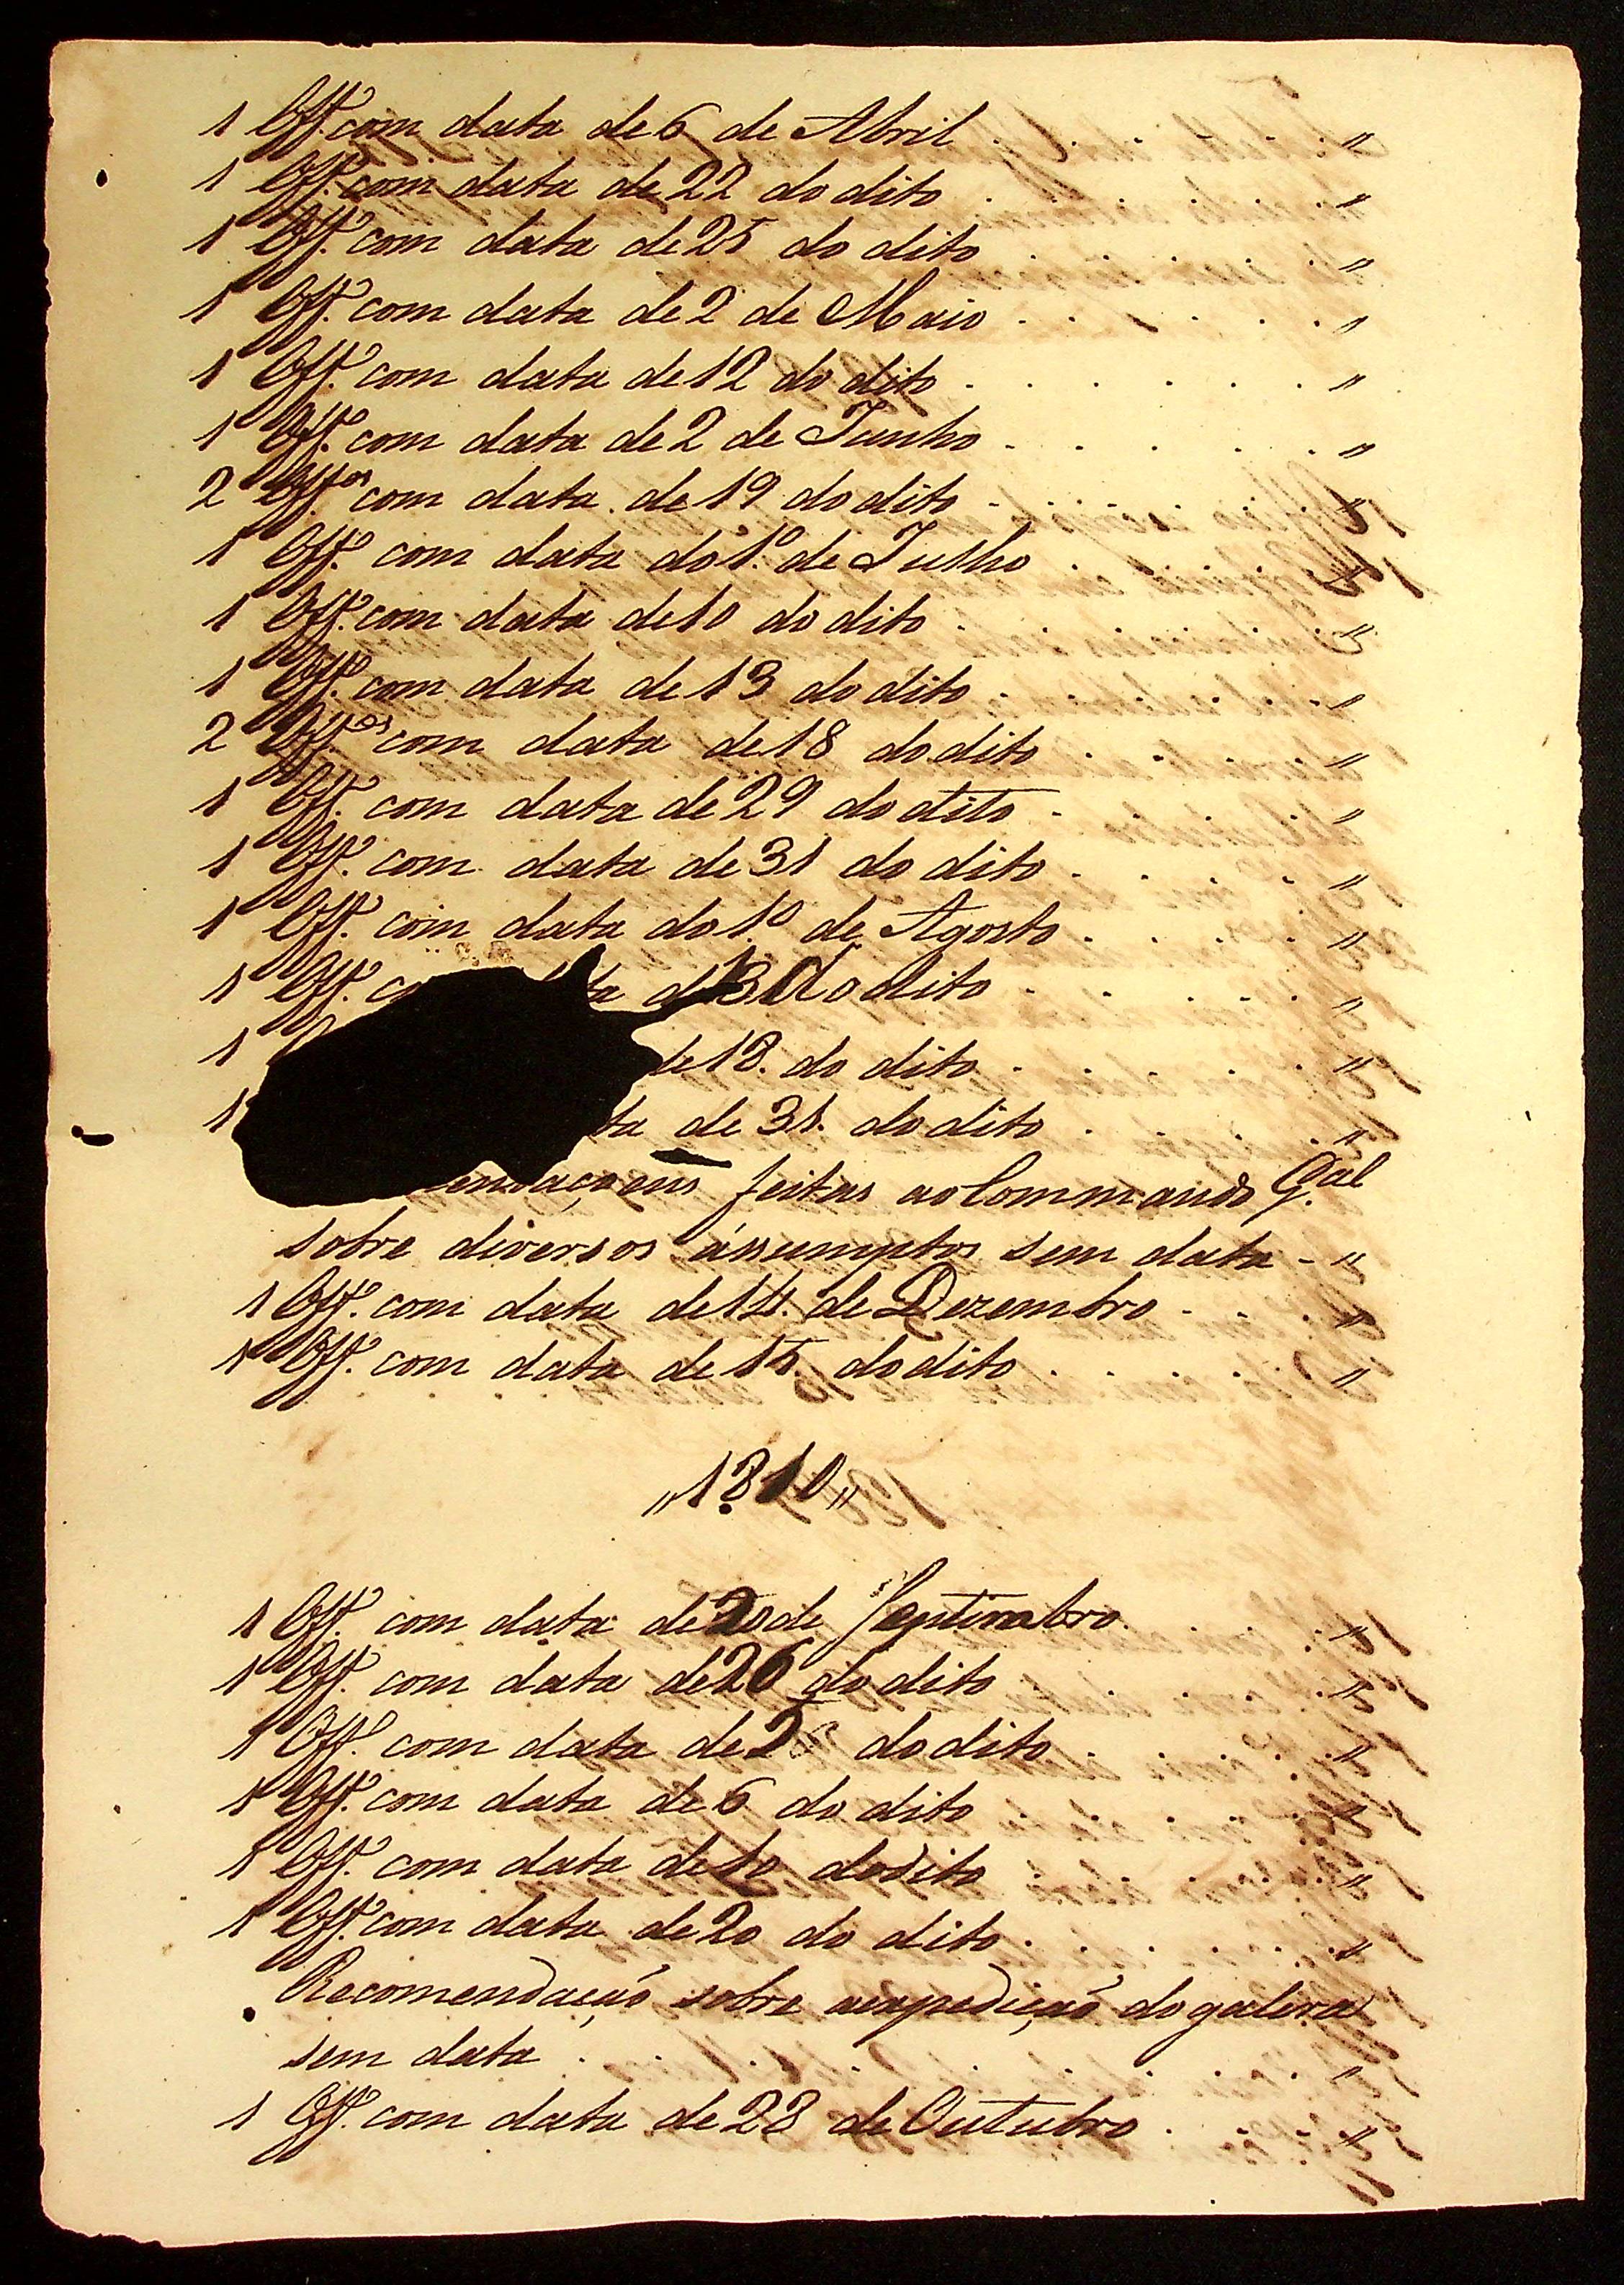 1 Off.º com data de 6 de Abril . . . . . . "
1 Off.º com data de 22 do dito . . . . . . "
1 Off.º com data de 25 do dito . . . . . . "
1 Off.º com data de 2 de Maio . . . . . . "
1 Off.º com data de 12 do dito . . . . . . "
1 Off.º com data de 2 de Junho . . . . . . "
2 Off.os com data de 19 do dito . . . . . . "
1 Off.º com data do 1.º de Julho . . . . . . "
1 Off.º com data de 10 do dito . . . . . . "
1 Off.º com data de 13 do dito . . . . . . "
2 Off.os com data de 18 do dito . . . . . . "
1 Off.º com data de 29 do dito . . . . . . "
1 Off.º com data de 31 do dito . . . . . . "
1 Off.º com data do 1.º de Agosto . . . . . . "
1 Off.º do dito . . . . . . "
1 de 18. do dito . . . . . . "
1 ta de 31. do dito . . . . . . "
endaçoens feitas ao Commando G.al
sobre diversos assumptos sem data - "
1 Off.º com data de 14. de Dezembro . . . "
1 Off.º com data de 15. do dito . . . . . "
"1810"
1 Off.º com data de 20 de Septimbro . . . "
1 Off.º com data de 26 do dito . . . . . "
1 Off.º com data de do dito . . . . . "
1 Off.º com data de 6 do dito . . . . . "
1 Off.º com data de 10 do dito . . . . . "
1 Off.º com data de 20 do dito . . . . . "
Recomendaçaõ sobre aexpediçaõ do galera
sem data . . . . . . "
1 Off.º com data de 28 de Outubro . . . "